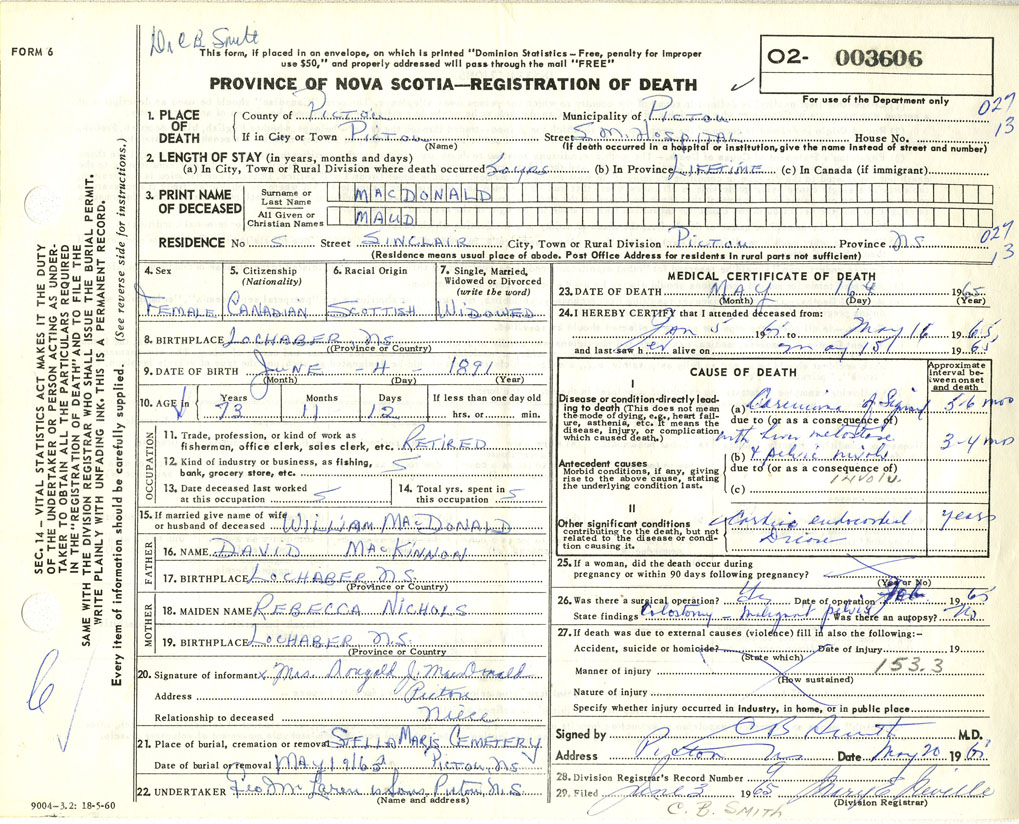 Dr C B Smith
FORM 6
This form, if placed in an envelope, on which is printed "Dominion Statistics – Free, penalty for improper
use $50," and properly addressed will pass through the mail "FREE"
O2- 003606
PROVINCE OF NOVA SCOTIA—REGISTRATION OF DEATH
For use of the Department only
027
13
1. PLACE OF DEATH
County of PICTOU Municipality of PICTOU
If in City or Town PICTOU Street S.M. HOSPITAL House No.
(Name) (If death occurred in a hospital or institution, give the name instead of street and number)
2. LENGTH OF STAY (in years, months and days)
(a) In City, Town or Rural Division where death occurred 50 yrs (b) In Province LIFETIME (c) In Canada (if immigrant)
3. PRINT NAME OF DECEASED
Surname or Last Name MACDONALD
All Given or Christian Names MAUD
027
13
RESIDENCE No 5 Street SINCLAIR City, Town or Rural Division PICTOU Province NS
(Residence means usual place of abode. Post Office Address for residents in rural parts not sufficient)
4. Sex FEMALE
5. Citizenship (Nationality) CANADIAN
6. Racial Origin SCOTTISH
7. Single, Married, Widowed or Divorced (write the word) WIDOWED
8. BIRTHPLACE LOCHABER, NS
(Province or Country)
9. DATE OF BIRTH JUNE - 4 - 1891
(Month) (Day) (Year)
10. AGE in Years 73 Months 11 Days 12 If less than one day old hrs. or min.
OCCUPATION
11. Trade, profession, or kind of work as
fisherman, office clerk, sales clerk, etc. RETIRED
12. Kind of industry or business, as fishing,
bank, grocery store, etc.
13. Date deceased last worked
at this occupation
14. Total yrs. spent in
this occupation
15. If married give name of wife
or husband of deceased WILLIAM MACDONALD
FATHER
16. NAME DAVID MACKINNON
17. BIRTHPLACE LOCHABER N.S.
(Province or Country)
MOTHER
18. MAIDEN NAME REBECCA NICHOLS
19. BIRTHPLACE LOCHABER N.S.
(Province or Country)
20. Signature of informant x Mrs. Dougald J. MacDonald
Address Pictou
Relationship to deceased Niece
21. Place of burial, cremation or removal STELLA MARIS CEMETERY
Date of burial or removal MAY 19 1965 PICTOU, NS
22. UNDERTAKER Geo McLaren & Sons Pictou N.S.
(Name and address)
MEDICAL CERTIFICATE OF DEATH
23. DATE OF DEATH MAY 16th 1965
(Month) (Day) (Year)
24. I HEREBY CERTIFY that I attended deceased from:
Jan 5 1965 to May 16 1965,
and last saw her alive on May 15 1965
CAUSE OF DEATH
Approximate interval between onset and death
I
Disease or condition directly leading to death (This does not mean the mode of dying, e.g., heart failure, asthenia, etc. It means the disease, injury, or complication which caused death.)
(a) Carcinoma of Sigmoid 5-6 mos
due to (or as a consequence of)
with liver metastase 3-4 mo
Antecedent causes
Morbid conditions, if any, giving rise to the above cause, stating the underlying condition last.
(b) & pelvic
due to (or as a consequence of)
INVOLV.
(c)
II
Other significant conditions
contributing to the death, but not related to the disease or condition causing it.
years
25. If a woman, did the death occur during
pregnancy or within 90 days following pregnancy?
(Yes or No)
26. Was there a surgical operation? Yes Date of operation Feb 1965
State findings Colostomy - malignant pelvis Was there an autopsy? No
27. If death was due to external causes (violence) fill in also the following:–
Accident, suicide or homicide? Date of injury 19
(State which)
Manner of injury 153.3
(How sustained)
Nature of injury
Specify whether injury occurred in industry, in home, or in public place
Signed by C B Smith M.D.
Address Pictou NS Date May 20 1965
28. Division Registrar's Record Number 9
29. Filed June 3 1965
(Division Registrar)
C. B. SMITH
SEC. 14 – VITAL STATISTICS ACT MAKES IT THE DUTY
OF THE UNDERTAKER OR PERSON ACTING AS UNDER-
TAKER TO OBTAIN ALL THE PARTICULARS REQUIRED
IN THE "REGISTRATION OF DEATH" AND TO FILE THE
SAME WITH THE DIVISION REGISTRAR WHO SHALL ISSUE THE BURIAL PERMIT.
WRITE PLAINLY WITH UNFADING INK. THIS IS A PERMANENT RECORD.
Every item of information should be carefully supplied. (See reverse side for instructions.)
6
9004–3.2: 18-5-60